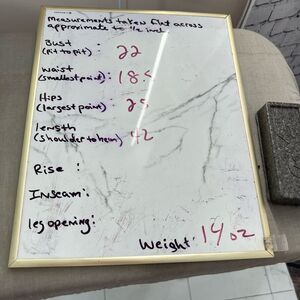 Measurements taken flat across
approximate to ½ inch
Bust
(pit to pit): 22
Waist
(smallest point):
Hips
(largest point):
Length
(shoulder to hem) 42
Rise :
Inseam:
leg opening:
Weight: 14 oz